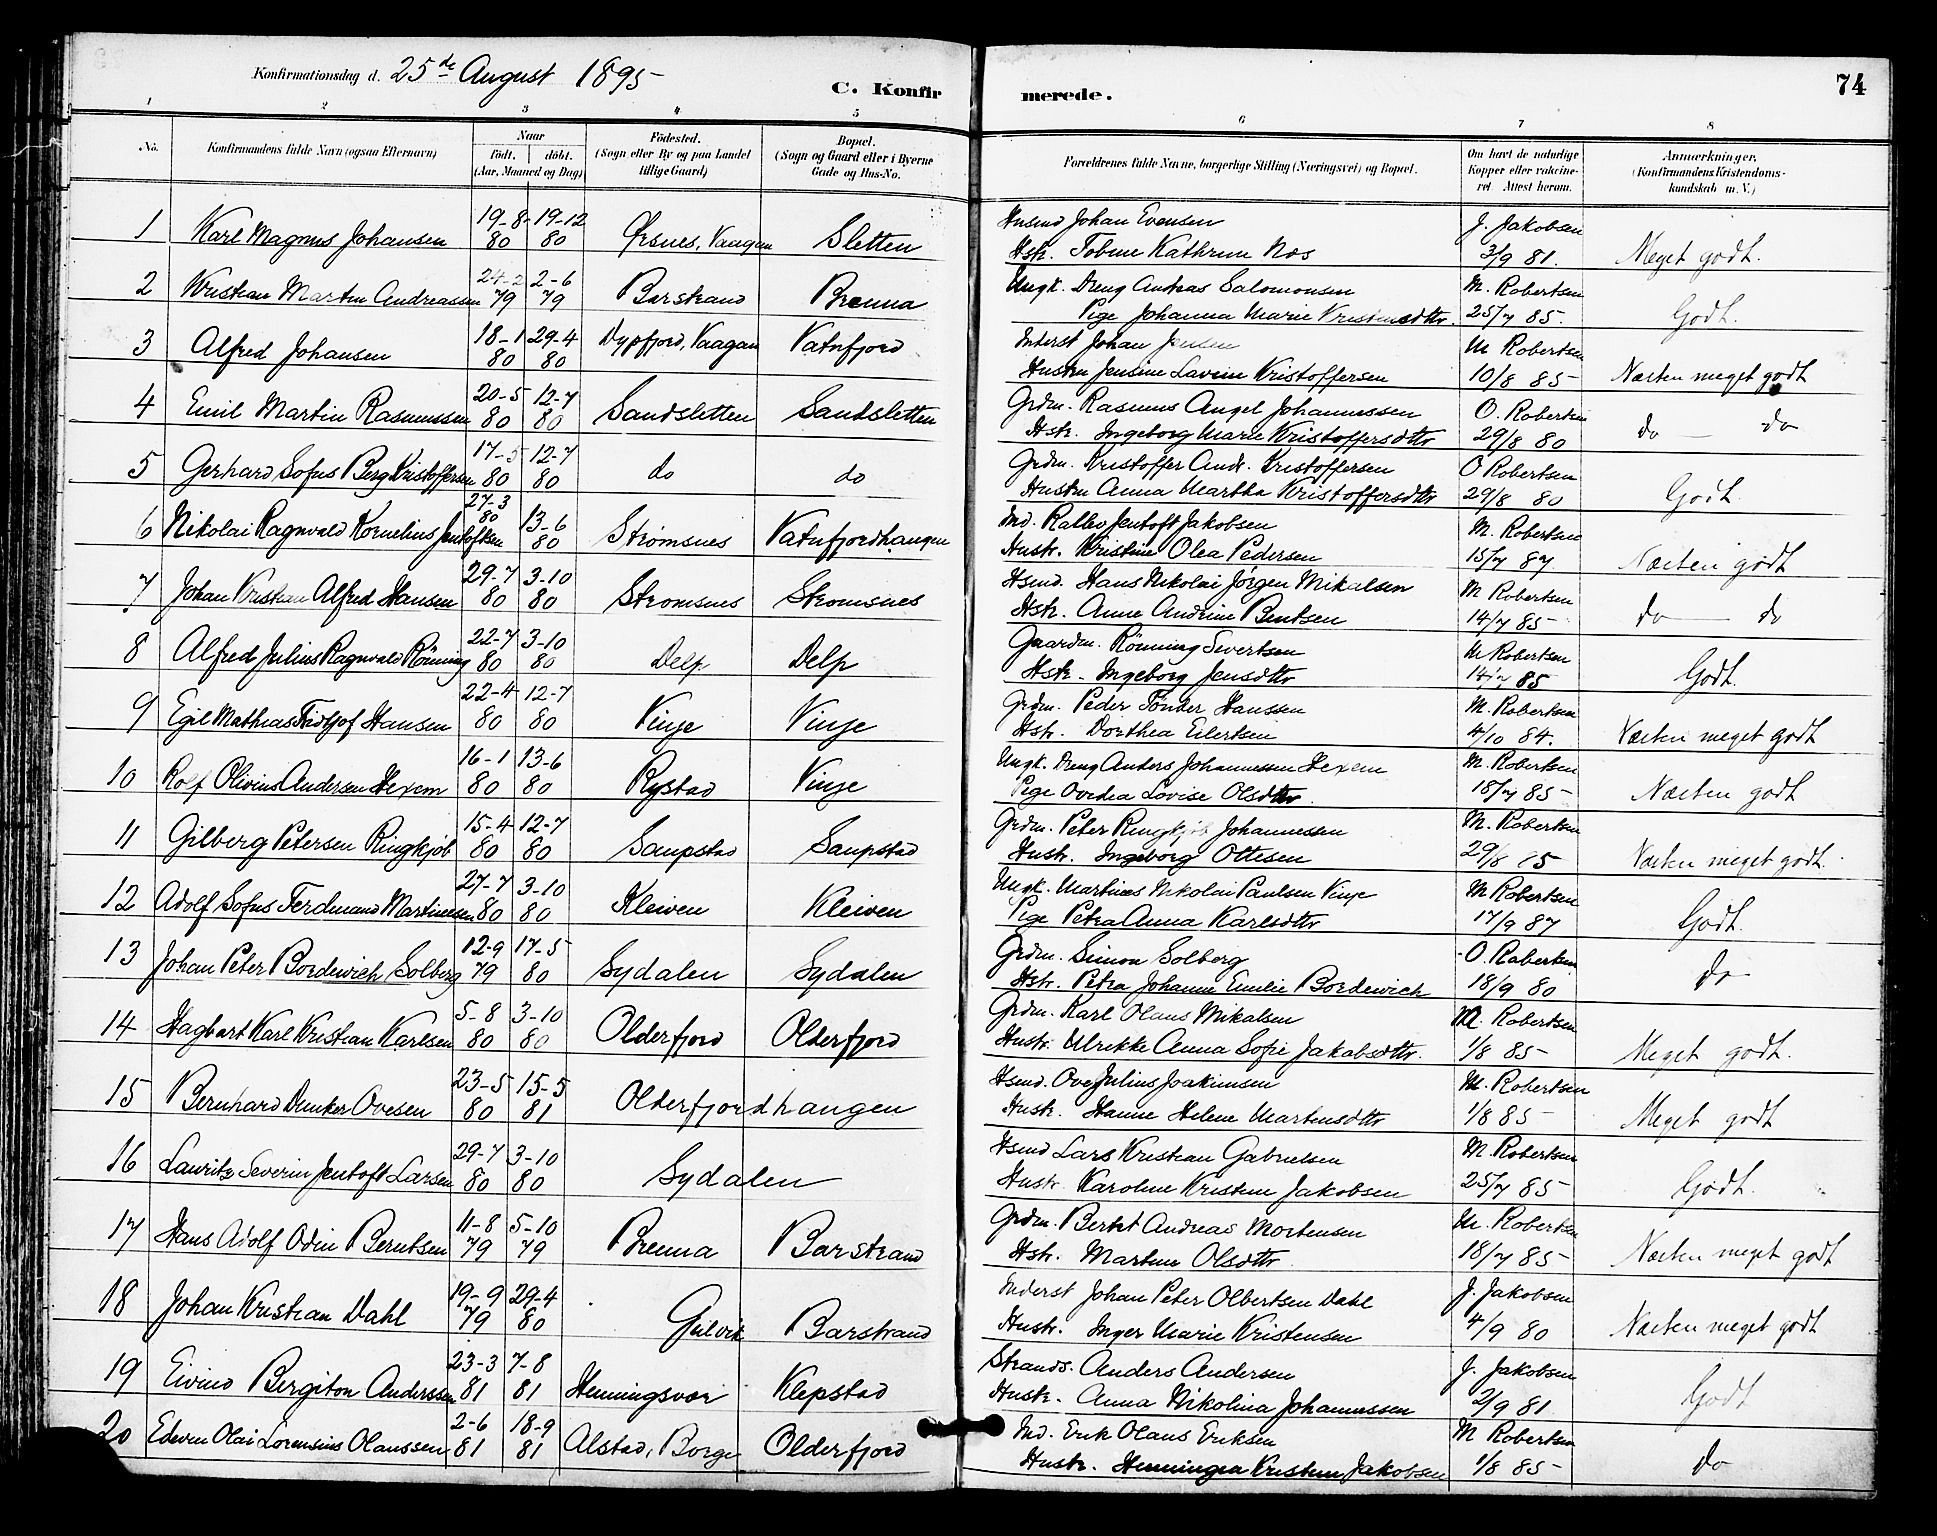 74
Konfirmationsdag d. 25de August 1895
C. Konfirmerede.
1 2 3 4 5 6 7 8
No. Konfirmandens fulde Navn (ogsaa Efternavn) Naar født. døbt. (Aar, Maaned og Dag) Fødested. (Sogn eller By og paa Landet tillige Gaard) Bopæl. (Sogn og Gaard eller i Byerne Gade og Hus-No. Forældrenes fulde Navne, borgerlige Stilling (Næringsvei) og Bopæl. Om havt de naturlige Kopper eller vakcineret. Attest herom. Anmærkninger, (Konfirmandens Kristendomskundskab m. V.)
1 Karl Magnus Johansen 19-8 80 19-12 80 Ørsnes, Vaagan Sletten Husmd Johan Evensen J. Jakobsen
Hstr. Tobine Kathrine Nos 3/9 81. Meget godt.
2 Kristian Martin Andreassen 24-2 79 2-6 79 Barstrand Brenna Ungk. Dreng Andreas Salomonsen M. Robertsen
Pige Johanna Marie Kristensdtr. 25/7 85. Godt.
3 Alfred Johansen 18-1 80 29-4 80 Dypfjord, Vaagan Vatnfjord Inderst Johan Jensen M Robertsen
Hustru Jensine Lavine Kristoffersen 10/8 85 Næsten meget godt
4 Emil Martin Rasmussen 20-5 80 12-7 80 Sandsletten Sandsletten Grdm. Rasmus Angel Johannessen O. Robertsen
Hstr. Ingeborg Marie Kristoffersdtr 29/8 80 do — do
5 Gerhard Sofus Berg Kristoffersen 17-5 80 12-7 80 do do Grdm. Kristoffer Andr. Kristoffersen O Robertsen
Hustru Anna Martha Kristoffersdtr 29/8 80 Godt.
6 Nikolai Ragnvald Kornelius Jentoftsen 27-3 80 13-6 80 Strømsnes Vatnfjordhangen Ind. Rallev Jentoft Jakobsen M. Robertsen
Hustr. Kristine Olea Pedersen 15/7 87 Næsten godt
7 Johan Kristian Alfred Hansen 29-7 80 3-10 80 Strømsnes Strømsnes Hsmd. Hans Nikolai Jørgen Mikalsen M Robertsen
Hstr. Anne Andrine Bentsen 14/7 85 do — do
8 Alfred Julius Ragnvald Rönning 22-7 80 3-10 80 Delp Delp Gaardm. Rönning Severtsen M Robertsen
Hstr. Ingeborg Jensdtr 14/7 85 Godt.
9 Egil Mathias Fridtjof Hansen 22-4 80 12-7 80 Vinje Vinje Grdm. Peder Tönder Hanssen M. Robertsen
Hstr. Dorthea Eilertsen 4/10 84. Næsten meget godt
10 Rolf Olivius Andersen Hexem 16-1 80 13-6 80 Rystad Vinje Ungk. Dreng Anders Johannessen Hexem M. Robertsen
Pige Ovedia Lovise Olsdtr. 18/7 85 Næsten godt
11 Gilberg Petersen Ringkjöb 15-4 80 12-7 80 Saupstad Saupstad Grdm. Peter Ringkjöb Johannessen M. Robertsen
Hustr. Ingeborg Ottesen 29/8 85 Næsten meget godt.
12 Adolf Sofus Ferdinand Martinesen 27-7 80 3-10 80 Kleiven Kleiven Ungk. Martines Nikolai Paulsen Vinje M Robertsen
Pige Petra Anna Karlsdtr 17/9 87 Godt.
13 Johan Peter Bordewich Solberg 12-9 79 17-5 80 Sydalen Sydalen Grdm. Simon Solberg O. Robertsen
Hstr. Petra Johanne Emilie Bordewich 18/9 80 do
14 Hagbart Karl Kristian Karlsen 5-8 80 3-10 80 Olderfjord Olderfjord Grdm. Karl Olaus Mikalsen M. Robertsen
Hustr. Ulrikke Anna Sofie Jakobsdtr. 1/8 85 Meget godt.
15 Bernhard Dunker Ovesen 23-5 80 15-5 81 Olderfjordhangen Hsmd. Ove Julius Joakimsen M. Robertsen
Hustr. Hanne Helene Martensdtr 1/8 85 Meget godt
16 Lauritz Severin Jentoft Larsen 29-7 80 3-10 80 Sydalen Hsmd Lars Kristian Gabrielsen M. Robertsen
Hustr. Karoline Kristine Jakobsen 25/7 85 Godt.
17 Hans Adolf Odin Berntsen 11-8 79 5-10 79 Brenna Barstrand Grdm. Berht Andreas Mortensen M. Robertsen
Hstr. Martine Olsdtr. 18/7 85 Næsten meget godt
18 Johan Kristian Dahl 19-9 79 29-4 80 Gulvik Barstrand Inderst Johan Peter Olbertsen Dahl J. Jakobsen
Hustr. Inger Marie Kristensen 4/9 80 Næsten meget godt
19 Eivind Bergiton Anderssen 23-3 81 7-8 81 Henningsvær Klepstad Strands. Anders Andersen J. Jakobsen
Hustr. Anna Nikolina Johannessen 2/9 81 Godt
20 Edevin Olai Lorensius Olaussen 2-6 81 18-9 81 Alstad, Borge Olderfjord Ind. Erik Olaus Eriksen M Robertsen
Hustr. Henningea Kristine Jakobsen 1/8 85 do